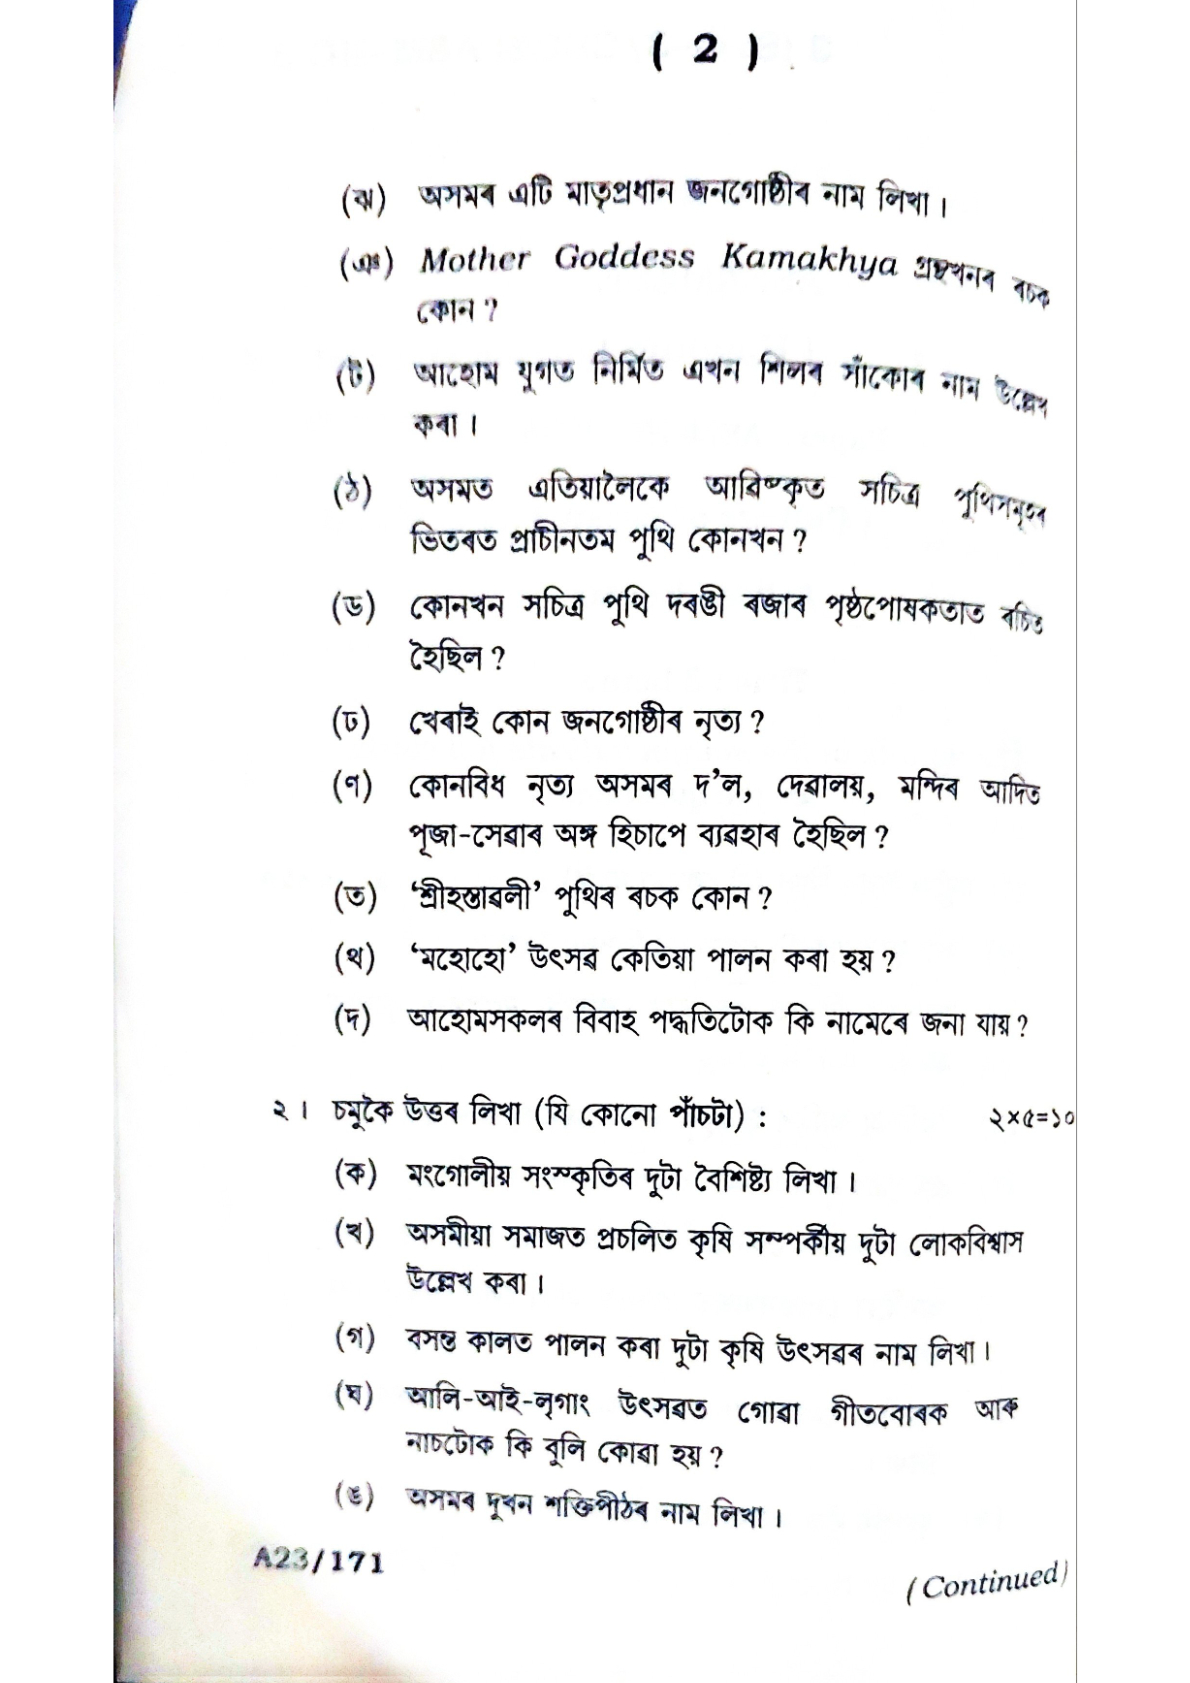 ( 2 )
(ঝ) অসমৰ এটি মাতৃপ্ৰধান জনগোষ্ঠীৰ নাম লিখা ।
(ঞ) Mother Goddess Kamakhya গ্ৰন্থখনৰ ৰচক
কোন ?
(ট) আহোম যুগত নিৰ্মিত এখন শিলৰ সাঁকোৰ নাম উল্লেখ
কৰা ।
(ঠ) অসমত এতিয়ালৈকে আৱিষ্কৃত সচিত্ৰ পুথিসমূহৰ
ভিতৰত প্ৰাচীনতম পুথি কোনখন ?
(ড) কোনখন সচিত্ৰ পুথি দৰঙী ৰজাৰ পৃষ্ঠপোষকতাত ৰচিত
হৈছিল ?
(ঢ) খেৰাই কোন জনগোষ্ঠীৰ নৃত্য ?
(ণ) কোনবিধ নৃত্য অসমৰ দ’ল, দেৱালয়, মন্দিৰ আদিত
পূজা-সেৱাৰ অঙ্গ হিচাপে ব্যৱহাৰ হৈছিল ?
(ত) ‘শ্ৰীহস্তাৱলী’ পুথিৰ ৰচক কোন ?
(থ) ‘মহোহো’ উৎসৱ কেতিয়া পালন কৰা হয় ?
(দ) আহোমসকলৰ বিবাহ পদ্ধতিটোক কি নামেৰে জনা যায় ?
২ । চমুকৈ উত্তৰ লিখা (যি কোনো পাঁচটা) : ২×৫=১০
(ক) মংগোলীয় সংস্কৃতিৰ দুটা বৈশিষ্ট্য লিখা ।
(খ) অসমীয়া সমাজত প্ৰচলিত কৃষি সম্পৰ্কীয় দুটা লোকবিশ্বাস
উল্লেখ কৰা ।
(গ) বসন্ত কালত পালন কৰা দুটা কৃষি উৎসৱৰ নাম লিখা ।
(ঘ) আলি-আই-লৃগাং উৎসৱত গোৱা গীতবোৰক আৰু
নাচটোক কি বুলি কোৱা হয় ?
(ঙ) অসমৰ দুখন শক্তিপীঠৰ নাম লিখা ।
A23/171
( Continued )